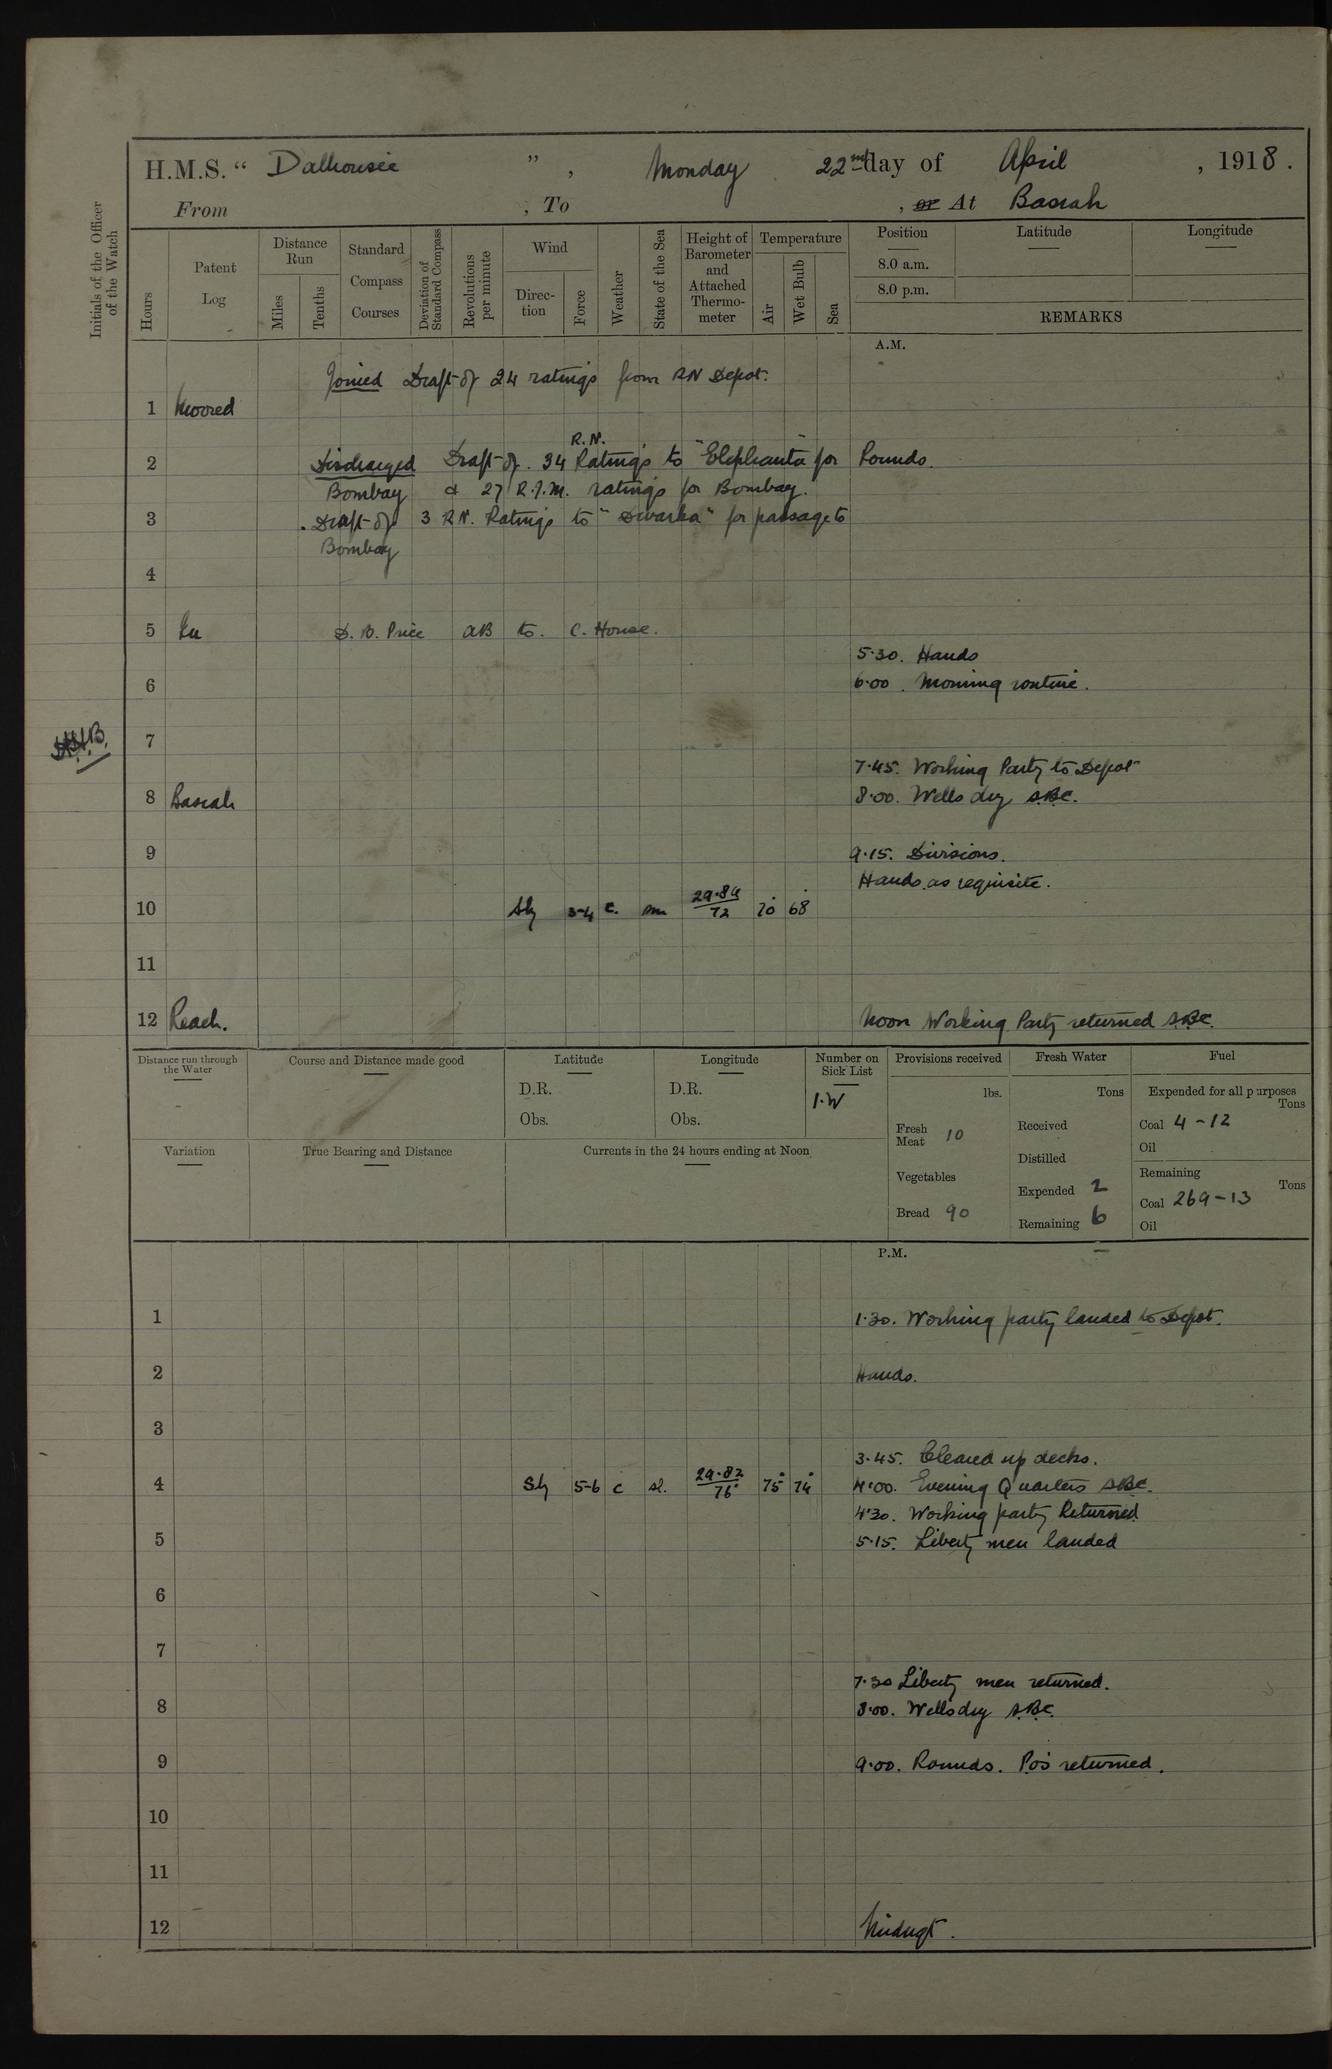 H.M.S. " Dalhousie ", Monday 22nd day of April, 1918.
From , To , or At Basrah
Initials of the Officer of the Watch
Hours
Patent Log
Distance Run
Miles
Tenths
Standard Compass Courses
Deviation of Standard Compass
Revolutions per minute
Wind
Direction
Force
Weather
State of the Sea
Height of Barometer and Attached Thermometer
Temperature
Air
Wet Bulb
Sea
Position
8.0 a.m.
8.0 p.m.
Latitude
Longitude
REMARKS
A.M.
Joined Draft of 24 ratings from RN Depot.
1 Moored
R.N.
2 Discharged Draft of 34 Ratings to "Elephanta" for Rounds.
Bombay & 27 R.I.M. ratings for Bombay.
3 Draft of 3 R.N. Ratings to "Dwarka" for passage to
Bombay
4
5 In D. B. Price AB to C. House.
5.30. Hands
6 6.00. Morning routine.
7
7.45. Working Party to Depot
8 Basrah 8.00. Wells dry S.B.C.
9 9.15. Divisions.
Hands as requisite.
10 Sly 3-4 c. sm 29.84/72 70° 68°
11
12 Reach. Noon Working Party returned S.B.C.
Distance run through the Water
Course and Distance made good
Latitude
D.R.
Obs.
Longitude
D.R.
Obs.
Number on Sick List
1.W
Provisions received
lbs.
Fresh Meat 10
Vegetables
Bread 90
Fresh Water
Tons
Received
Distilled
Expended 2
Remaining 6
Fuel
Expended for all purposes
Tons
Coal 4-12
Oil
Remaining
Tons
Coal 269-13
Oil
Variation
True Bearing and Distance
Currents in the 24 hours ending at Noon
P.M.
1 1.30. Working party landed to Depot.
2 Hands.
3
3.45. Cleared up decks.
4 Sly 5-6 c sl. 29.82/76° 75° 74° 4.00. Evening Quarters S.B.C.
4.30. Working party Returned
5 5.15. Liberty men landed
6
7
7.30 Liberty men returned.
8 8.00. Wells dry S.B.C.
9 9.00. Rounds. P.O's returned.
10
11
12 Midngt.